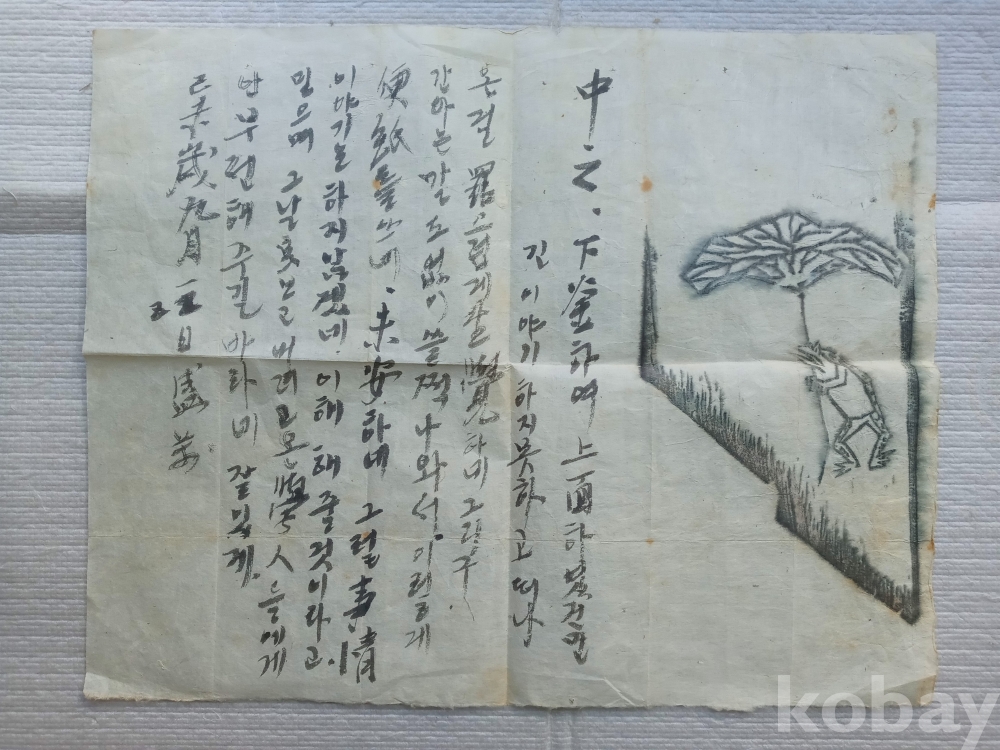 中之. 下釜하여 上面하였건만
긴 이야기 하지 못하고 떠나
온걸 罪스럽게 覺하네 그리구
간다는 말 도 없이 쓸쩍 나와서. 이렇게
便紙를 쓰네. 未安하네 그럴 事情이
이야기는 하지 않겠네. 이해 해 줄것이라고
믿으며 그날 못보고 버려고온 人들에게
안부전해 주길 바라며 잘있게.
己未歲 九月 五日
kobay